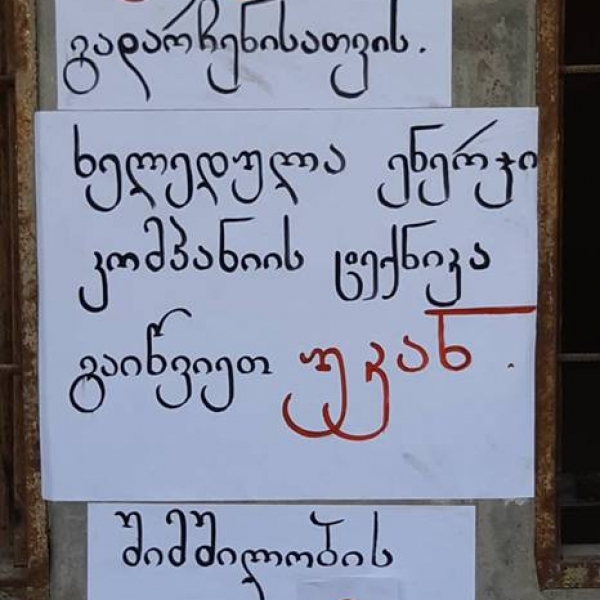 გადარჩენისათვის.
ხელედულა ენერჯი
კომპანიის ტექნიკა
გაიწვიეთ უკან.
შიმშილობის